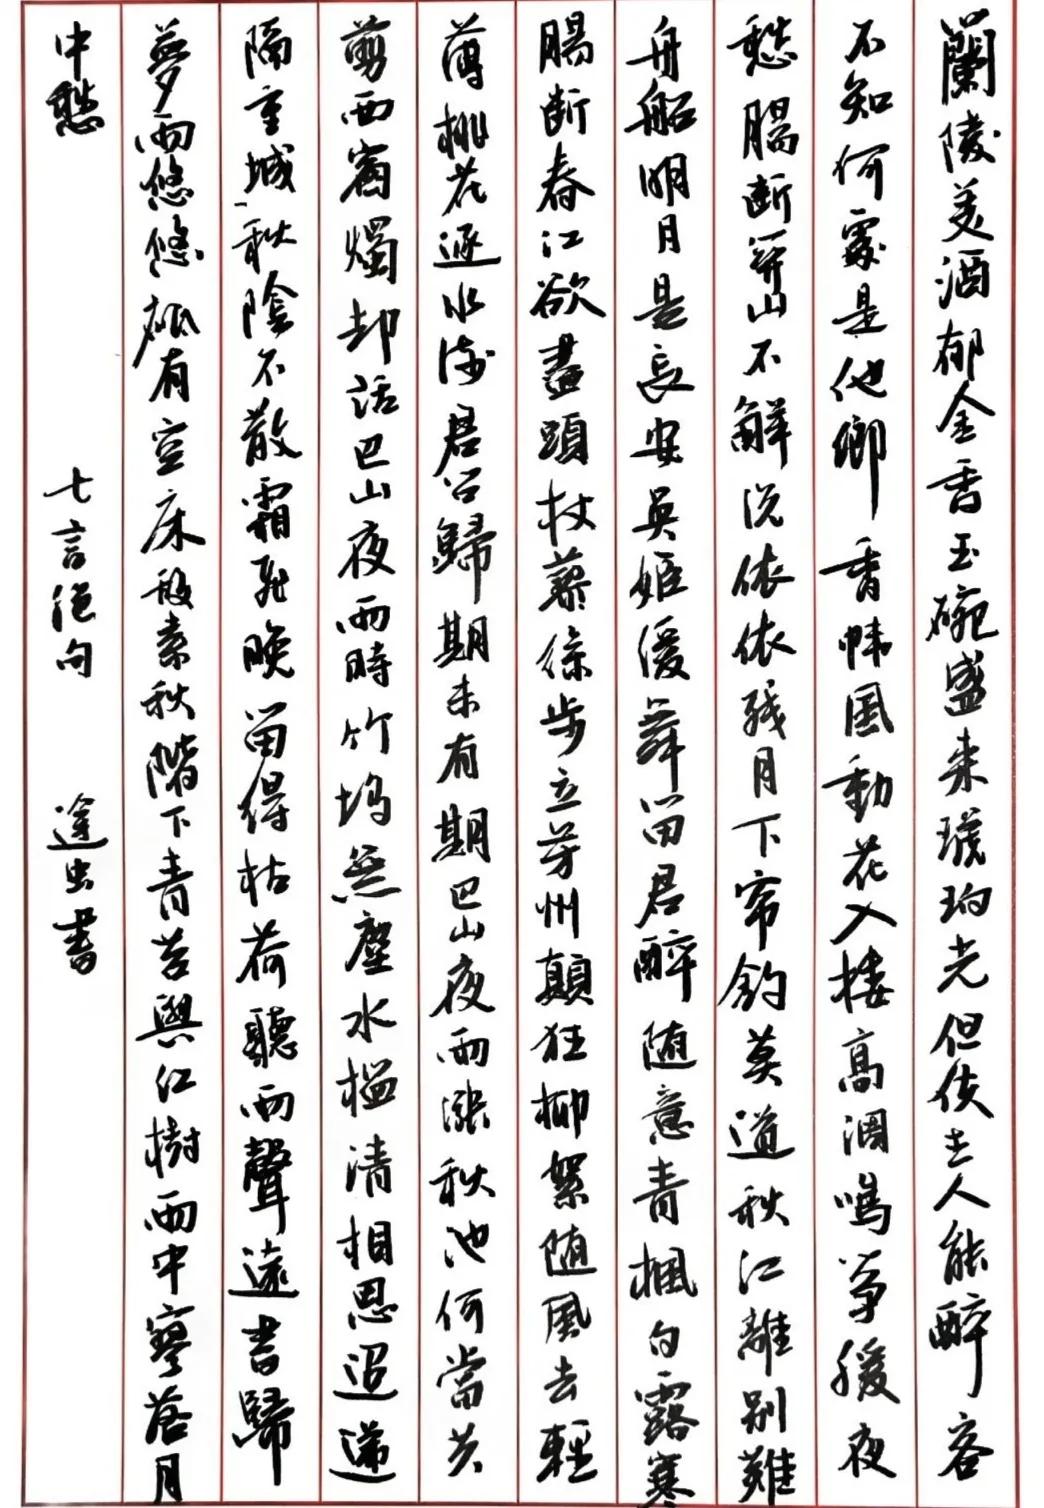 蘭陵美酒郁金香玉碗盛来琥珀光但使主人能醉客
不知何處是他鄉香幃風動花入樓高調鳴箏緩夜
愁腸斷關山不解說依依残月下帘鈎莫道秋江離别難
舟船明月是長安吳姬緩舞留君醉随意青楓白露寒
腸斷春江欲盡頭杖藜徐步立芳州顛狂柳絮随風去輕
薄桃花逐水流君問歸期未有期巴山夜雨漲秋池何當共
剪西窗燭却話巴山夜雨時竹塢無塵水檻清相思迢递
隔重城秋陰不散霜飛晚留得枯荷聽雨聲遠書歸
夢兩悠悠祇有空床敵素秋階下青苔與紅樹雨中寥落月
中愁 七言绝句 途虫書